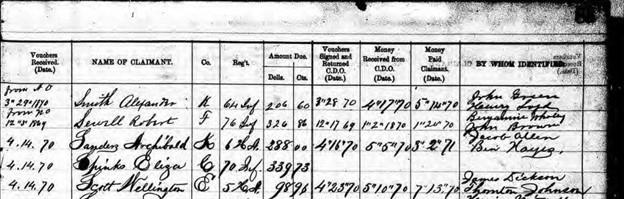 Vouchers Received. (Date.) NAME OF CLAIMANT. Co. Reg't. Amount Due. Dolls. Cts. Vouchers Signed and Returned C.D.O. (Date.) Money Received from C.D.O. (Date.) Money Paid Claimant. (Date.) BY WHOM IDENTIFIED.
from N.O John Green
3" 29" 1870 Smith Alexander K 64 Inf 206 60 3" 28 70 4" 17" 70 5" 14" 70 Henry
from N.O Benjamin
12" 8" 1869 Sewell Robert F 76 Inf 326 86 12" 17 69 1" 2" 1870 1" 20" 70 John Brown
4.14.70 Sanders Archibald K 6 H.A. 288 00 4" 16" 70 5" 5" 70 3" 2" 71 Jacob Allen
Ben Hayes
4.14.70 Spinks Eliza C 70 Inf 339 73
4.14.70 Scott Wellington E 5 H.A. 98 96 4" 25" 70 5" 10" 70 7" 13" 70 James Dickson
Thornton Johnson